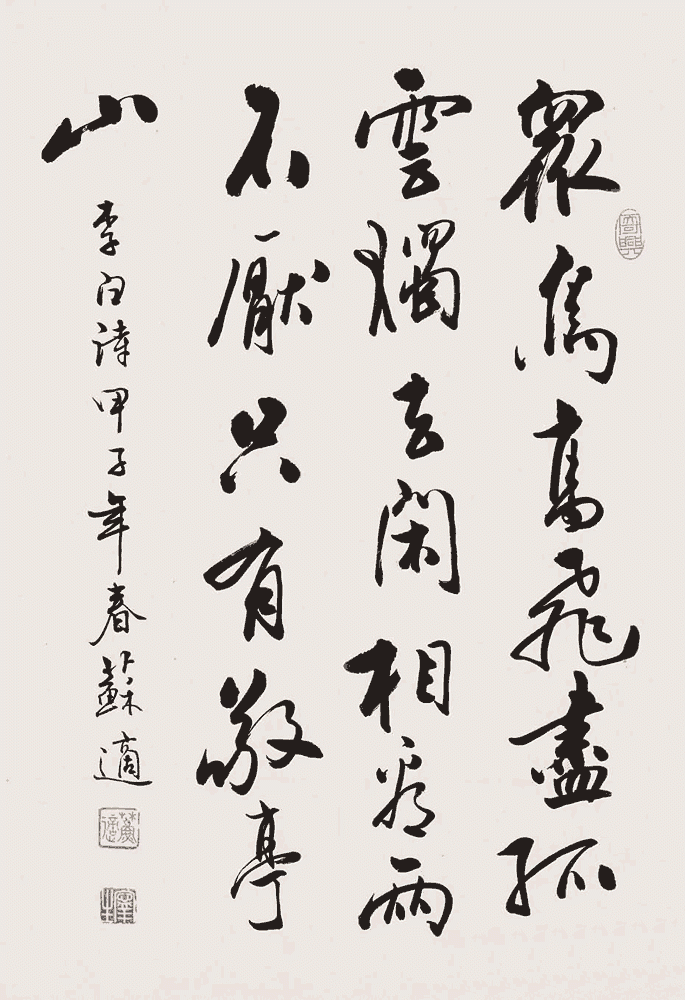 眾鳥高飛盡孤
雲獨去閑相看兩
不厭只有敬亭
山
李白詩甲子年春蘇適